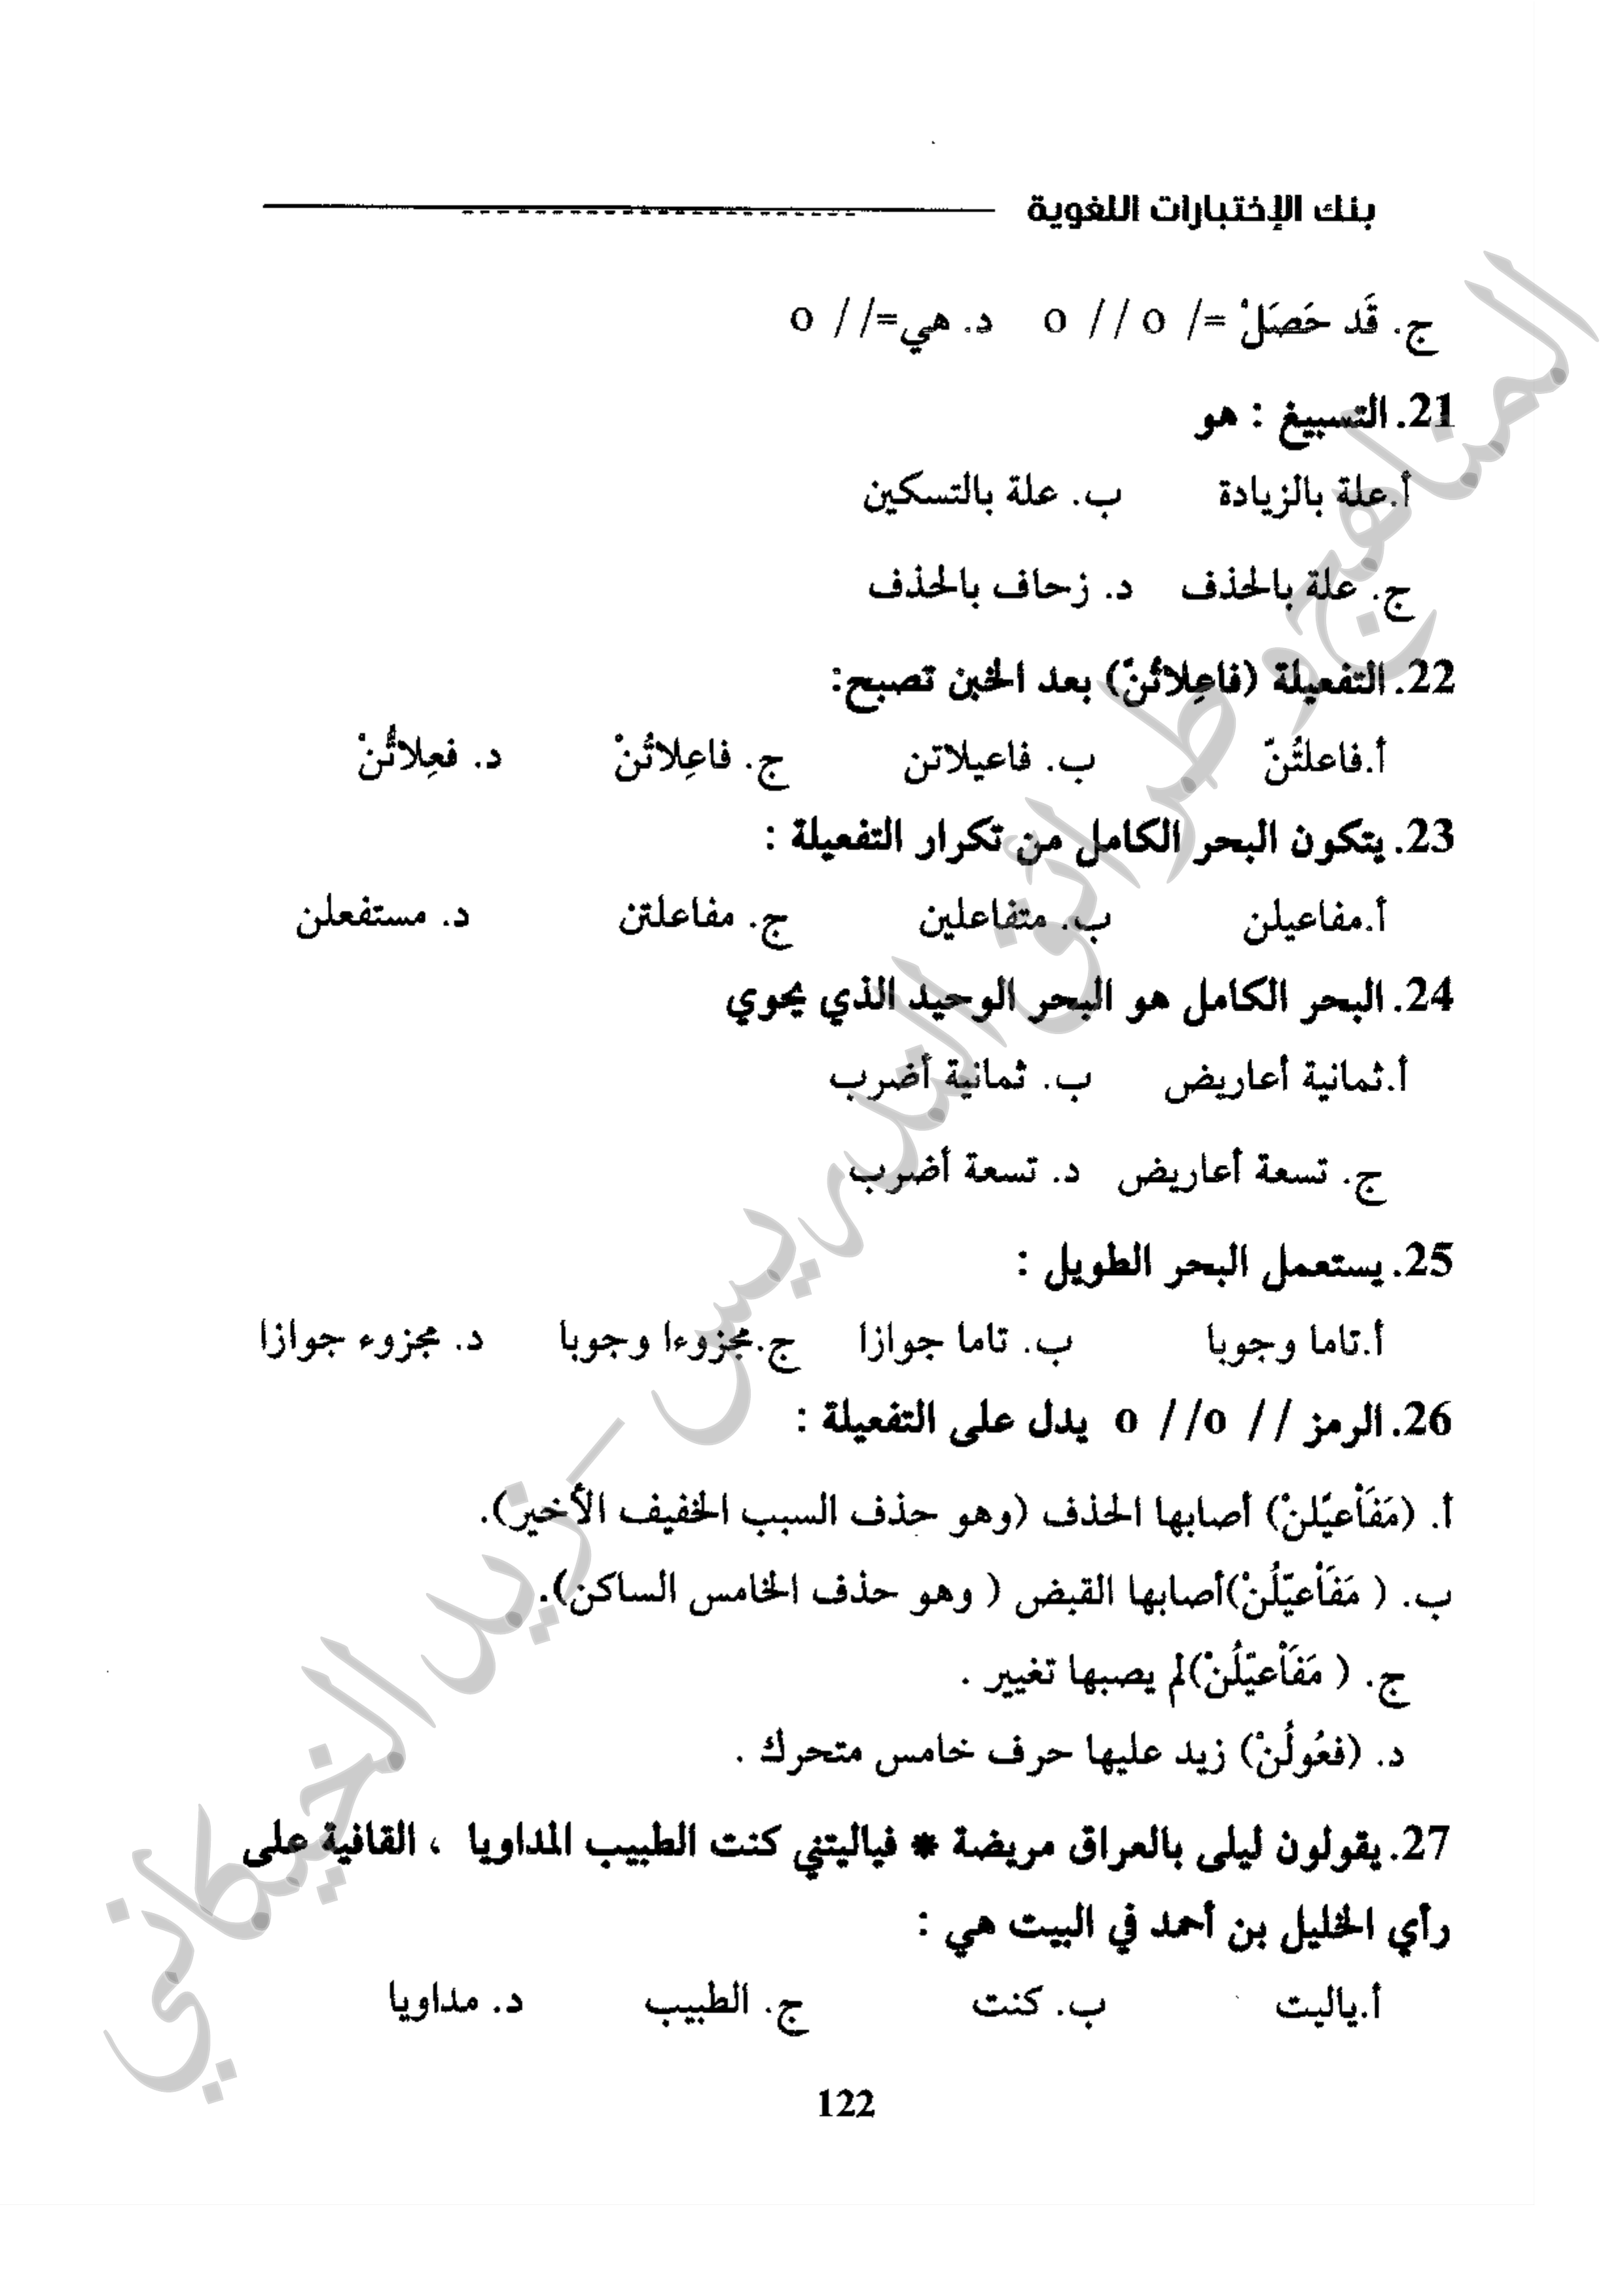 بنك الإختبارات اللغوية
ج. قَد حَصَلْ =/ o // o د. هي=// o
21. التسبيغ : هو
أ.علة بالزيادة ب. علة بالتسكين
ج. علة بالحذف د. زحاف بالحذف
22. التفعيلة (فاعِلاتُنّ) بعد الخبن تصبح:
أ.فاعلتُنّ ب. فاعيلاتن ج. فاعِلاتُنْ د. فعِلاتُنْ
23. يتكون البحر الكامل من تكرار التفعيلة :
أ.مفاعيلن ب. متفاعلين ج. مفاعلتن د. مستفعلن
24. البحر الكامل هو البحر الوحيد الذي يحوي
أ.ثمانية أعاريض ب. ثمانية أضرب
ج. تسعة أعاريض د. تسعة أضرب
25. يستعمل البحر الطويل :
أ.تاما وجوبا ب. تاما جوازا ج.مجزوءا وجوبا د. مجزوء جوازا
26. الرمز // o// o يدل على التفعيلة :
أ. (مَفَاْعيّلنْ) أصابها الحذف (وهو حذف السبب الخفيف الأخير).
ب. ( مَفَاْعيّلُنْ)أصابها القبض ( وهو حذف الخامس الساكن).
ج. ( مَفَاْعيّلُنْ)لم يصبها تغيير .
د. (فعُولُنْ) زيد عليها حرف خامس متحرك .
27. يقولون ليلى بالعراق مريضة * فياليتني كنت الطبيب المداويا ، القافية على
رأي الخليل بن أحمد في البيت هي :
أ.ياليت ب. كنت ج. الطبيب د. مداويا
122
المناهج وطرائق التدريس - زيد الخيكاني